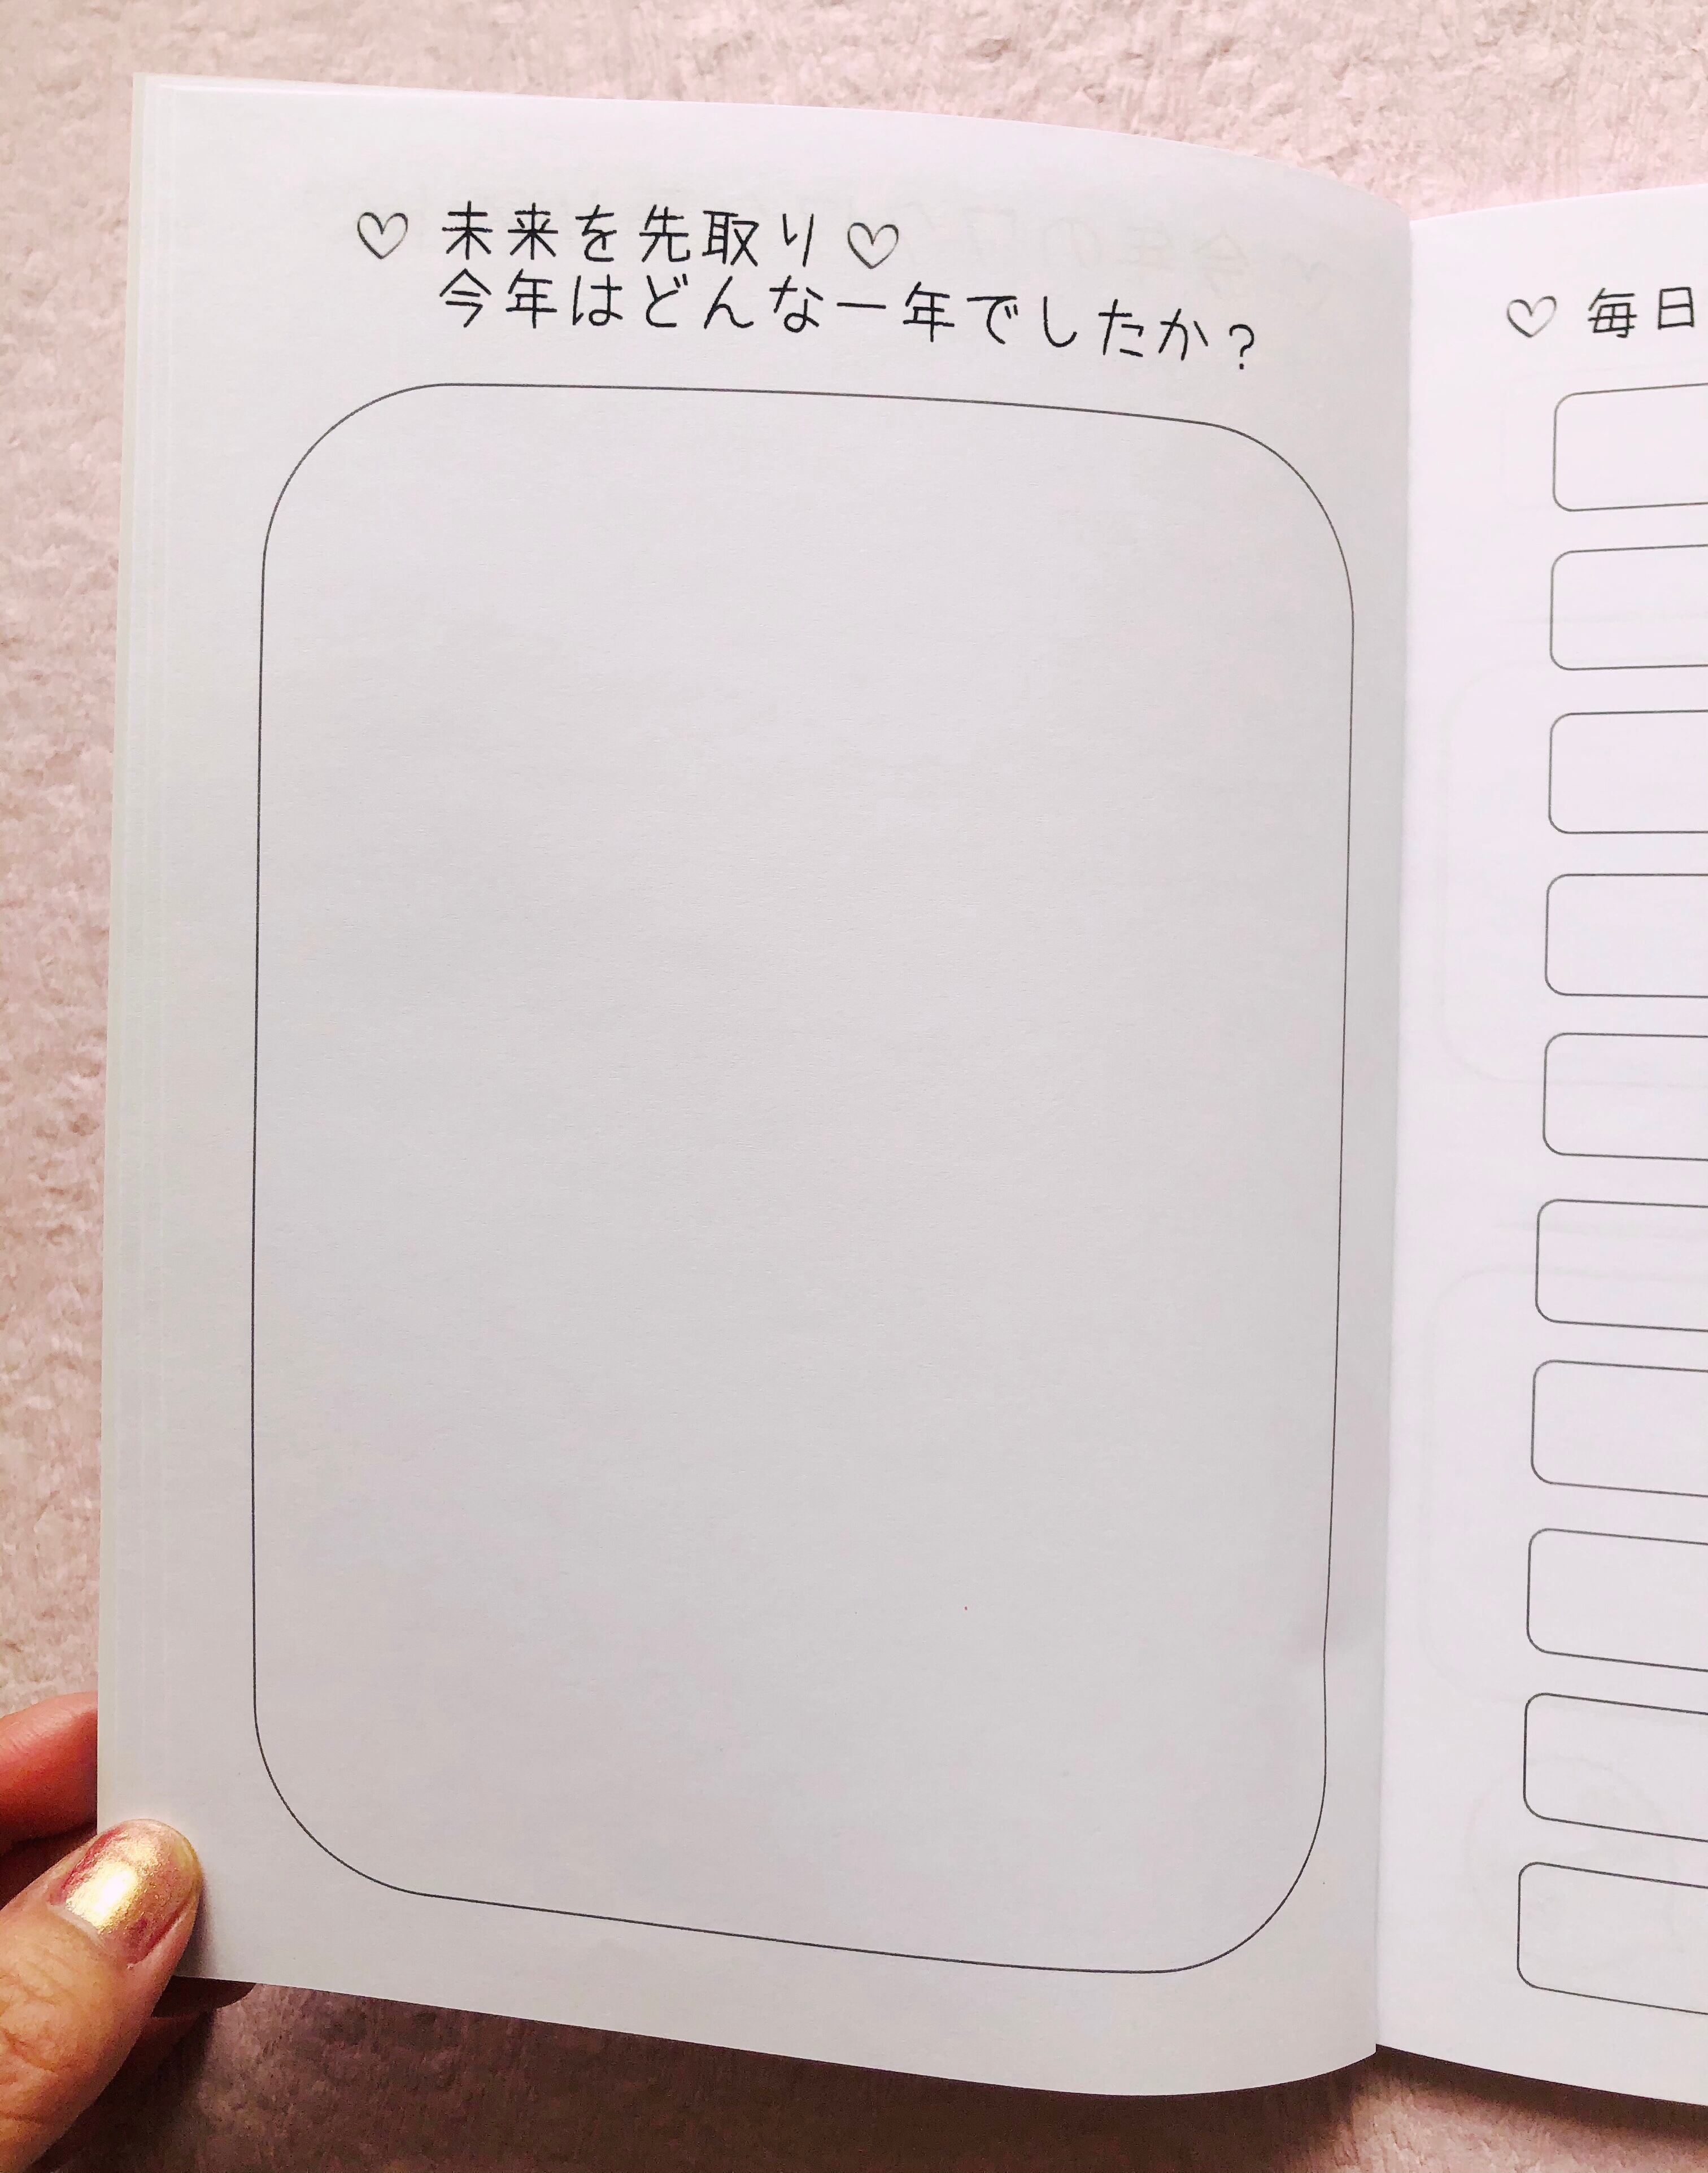 ♡ 未来を先取り ♡
今年はどんな一年でしたか?
♡ 毎日